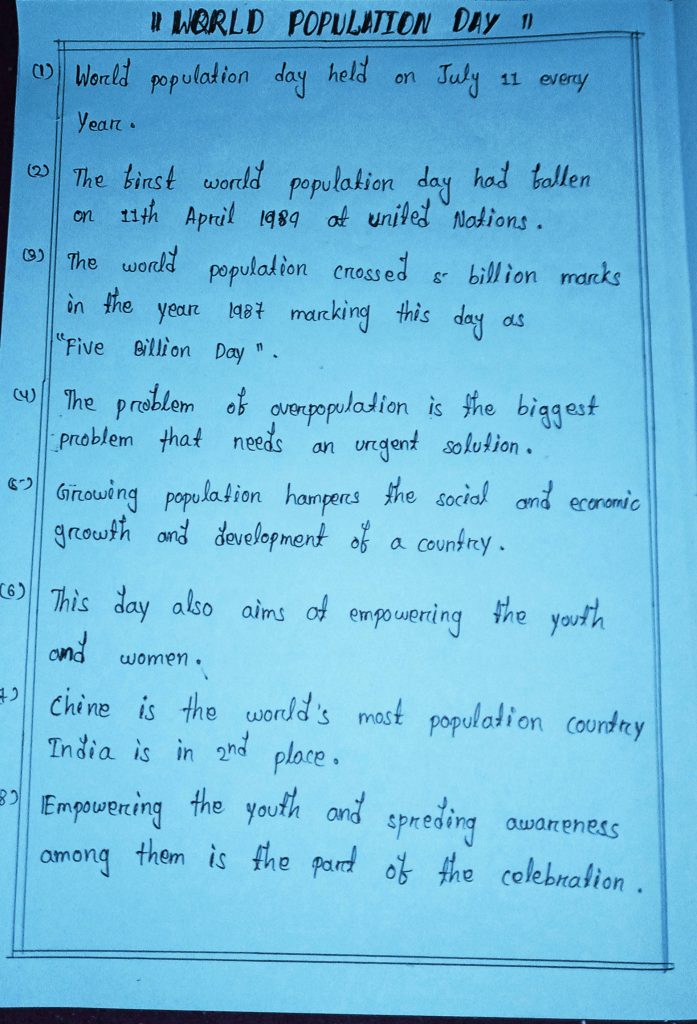 " WORLD POPULATION DAY "
(1) World population day held on July 11 every
Year.
(2) The first world population day had fallen
on 11th April 1989 at united Nations.
(3) The world population crossed 5 billion marks
in the year 1987 marking this day as
"Five Billion Day".
(4) The problem of overpopulation is the biggest
problem that needs an urgent solution.
(5) Growing population hampers the social and economic
growth and development of a country.
(6) This day also aims at empowering the youth
and women.
7) Chine is the world's most population country
India is in 2nd place.
8) Empowering the youth and spreding awareness
among them is the part of the celebration.